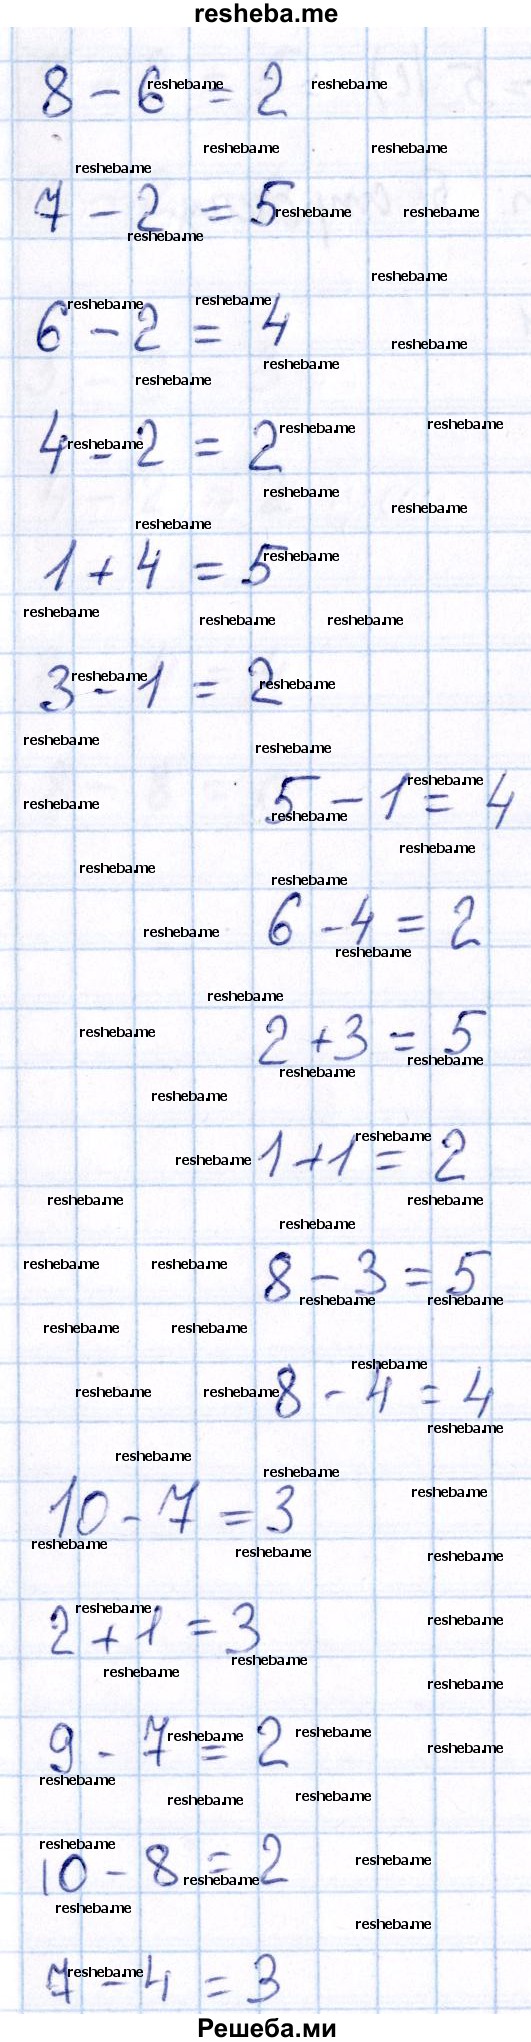 resheba.me
8 - 6 = 2
7 - 2 = 5
6 - 2 = 4
4 - 2 = 2
1 + 4 = 5
3 - 1 = 2
5 - 1 = 4
6 - 4 = 2
2 + 3 = 5
1 + 1 = 2
8 - 3 = 5
8 - 4 = 4
10 - 7 = 3
2 + 1 = 3
9 - 7 = 2
10 - 8 = 2
7 - 4 = 3
Решеба.ми